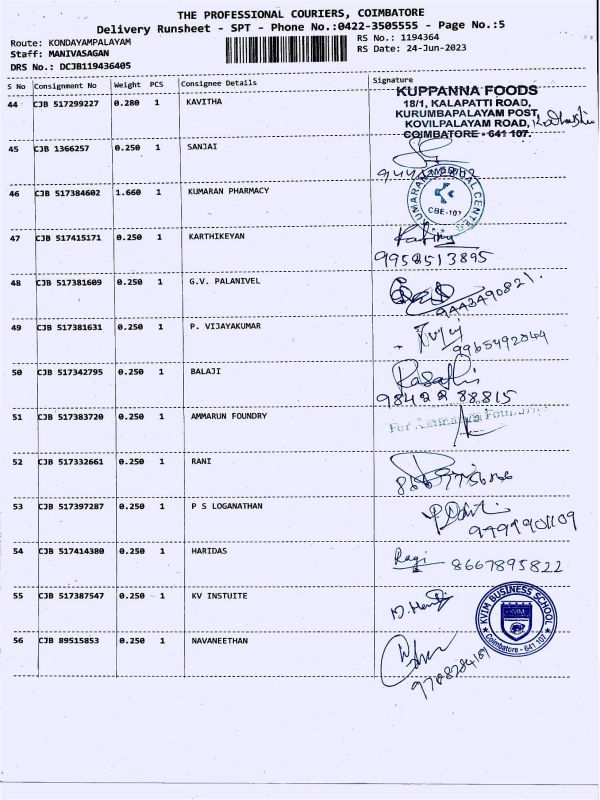 THE PROFESSIONAL COURIERS, COIMBATORE
Delivery Runsheet - SPT - Phone No.:0422-3505555 - Page No.:5
Route: KONDAYAMPALAYAM
RS No.: 1194364
Staff: MANIVASAGAN
RS Date: 24-Jun-2023
DRS No.: DCJB119436405
S No Consignment No Weight PCS Consignee Details Signature
44 CJB 517299227 0.280 1 KAVITHA
KUPPANNA FOODS
18/1, KALAPATTI ROAD,
KURUMBAPALAYAM POST,
KOVILPALAYAM ROAD,
COIMBATORE - 641 107.
45 CJB 1366257 0.250 1 SANJAI
46 CJB 517384602 1.660 1 KUMARAN PHARMACY
CBE-107
47 CJB 517415171 0.250 1 KARTHIKEYAN
9958513895
48 CJB 517381609 0.250 1 G.V. PALANIVEL
9443490821.
49 CJB 517381631 0.250 1 P. VIJAYKUMAR
9965492049
50 CJB 517342795 0.250 1 BALAJI
98422 88815
51 CJB 517383720 0.250 1 AMMARUN FOUNDRY
52 CJB 517332661 0.250 1 RANI
53 CJB 517397287 0.250 1 P S LOGANATHAN
54 CJB 517414380 0.250 1 HARIDAS
Ragi 8667895822
55 CJB 517387547 0.250 1 KV INSTUITE
KVIM BUSINESS SCHOOL
KVIM
Coimbatore - 641 107
56 CJB 89515853 0.250 1 NAVANEETHAN